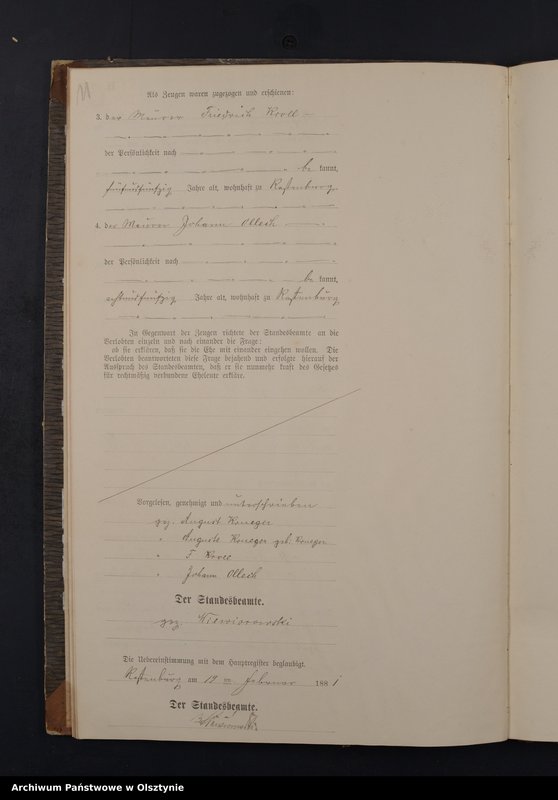 11
Als Zeugen waren zugezogen und erschienen:
3. der Maurer Friedrich Kroll
der Persönlichkeit nach
be kannt,
fünfundfünfzig Jahre alt, wohnhaft zu Rastenburg
4. der Maurer Johann Ollech
der Persönlichkeit nach
be kannt,
achtundfünfzig Jahre alt, wohnhaft zu Rastenburg
In Gegenwart der Zeugen richtete der Standesbeamte an die
Verlobten einzeln und nach einander die Frage:
ob sie erklären, daß sie die Ehe mit einander eingehen wollen. Die
Verlobten beantworteten diese Frage bejahend und erfolgte hierauf der
Ausspruch des Standesbeamten, daß er sie nunmehr kraft des Gesetzes
für rechtmäßig verbundene Eheleute erkläre.
Vorgelesen, genehmigt und unterschrieben
gez. August Koneger
" Auguste Koneger geb.
" F Kroll
" Johann Ollech
Der Standesbeamte.
gez. Wiewiorowski
Die Uebereinstimmung mit dem Hauptregister beglaubigt.
Rastenburg am 19 ten Februar 1881
Der Standesbeamte.
Wiewiorowski
Archiwum Państwowe w Olsztynie